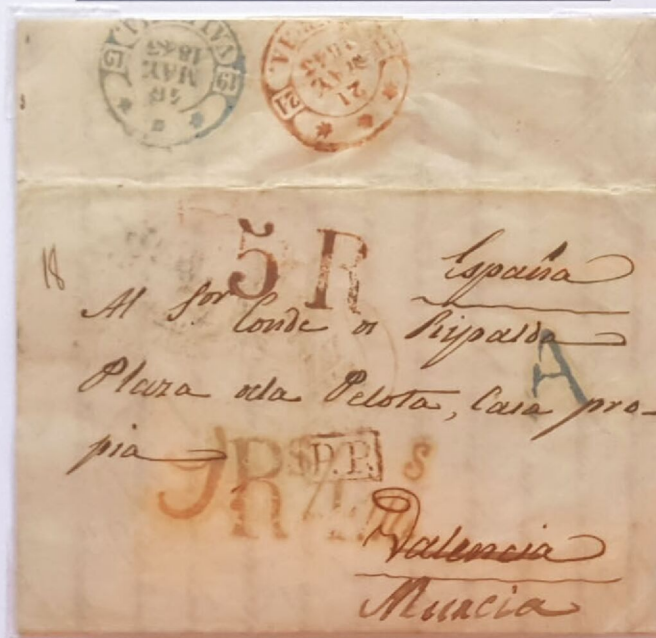 19 MAY. 1843 13
21 MAY
5 R
España
18
Al Sor Conde de Ripalda
A
Plaza dela Pelota, Casa pro-
pia
P.P.
Rs
Valencia
Murcia